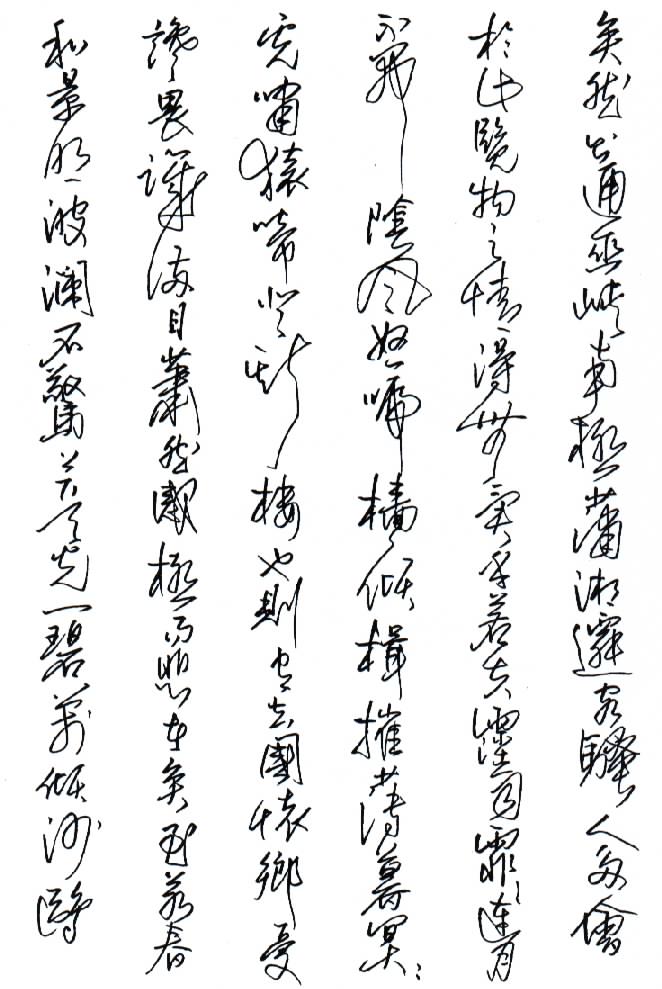 矣然北通巫峽南極瀟湘遷客騷人多會
於此覽物之情得無異乎若夫霪雨霏霏連月
不開陰風怒號檣傾楫摧薄暮冥冥
虎嘯猿啼登斯樓也則有去國懷鄉憂
讒畏譏滿目蕭然感極而悲者矣至若春
和景明波瀾不驚上下天光一碧萬頃沙鷗